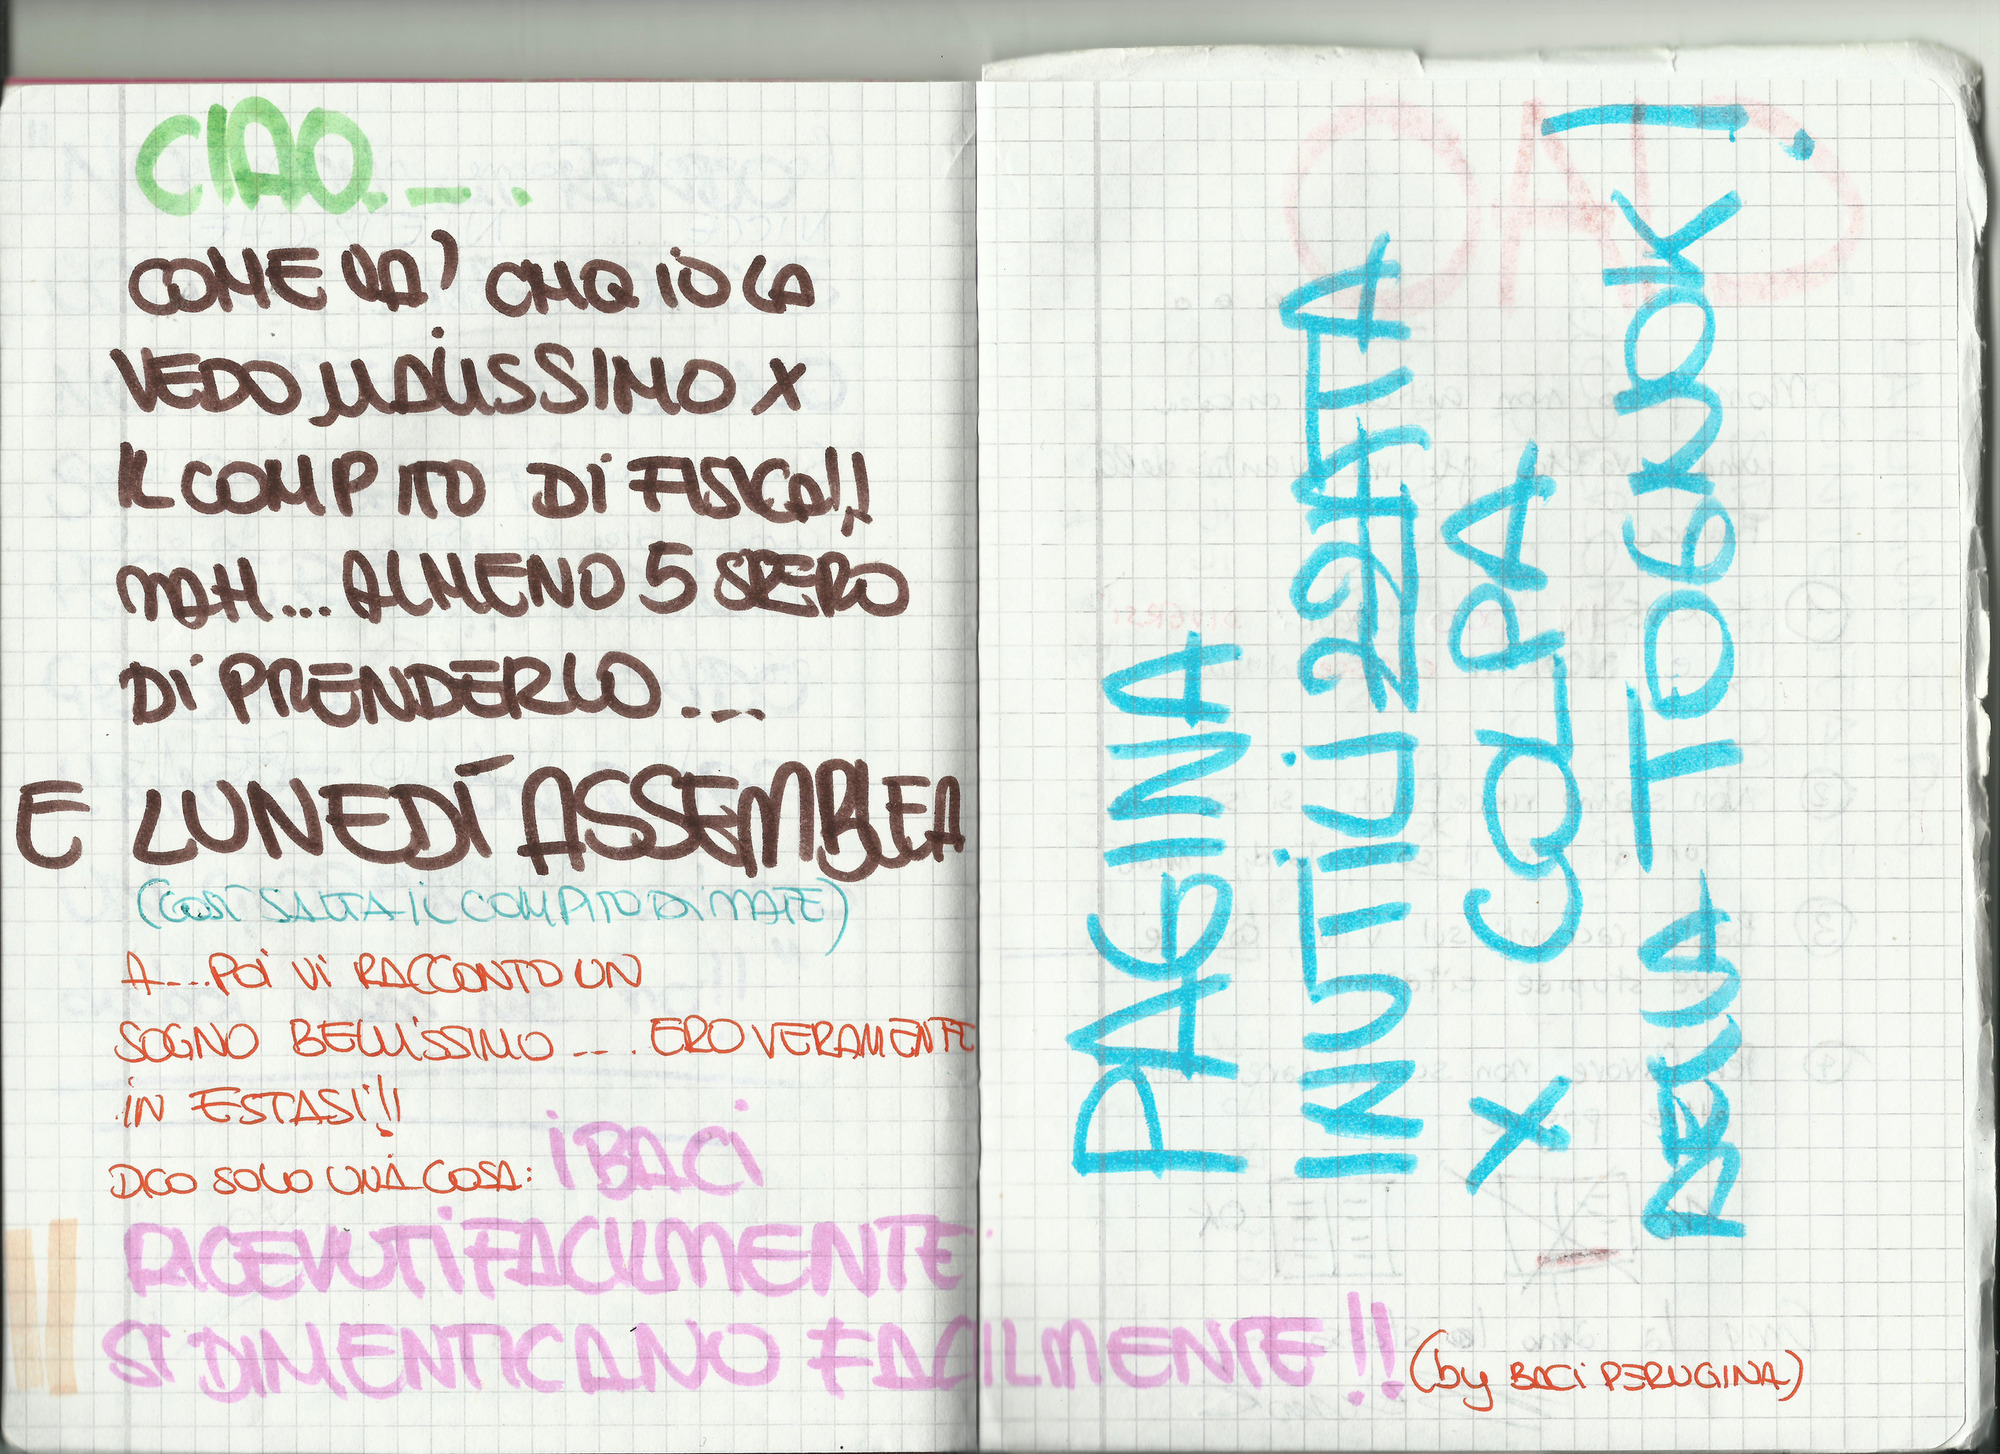 CIAO...
COME VA? CMQ IO LA
VEDO MALISSIMO X
IL COMPITO DI FISICA!!
MAH... ALMENO 5 SPERO
DI PRENDERLO...
E LUNEDÍ ASSEMBLEA
(COSÌ SALTA IL COMPITO DI MATE)
A....POI VI RACCONTO UN
SOGNO BELLISSIMO .... ERO VERAMENTE
IN ESTASI!!!
DICO SOLO UNA COSA: I BACI
RICEVUTI FACILMENTE
SI DIMENTICANO FACILMENTE!!
(by BACI PERUGINA)
PAGINA
INUTILIZZATA
X COLPA
DELLA TOGNOK!